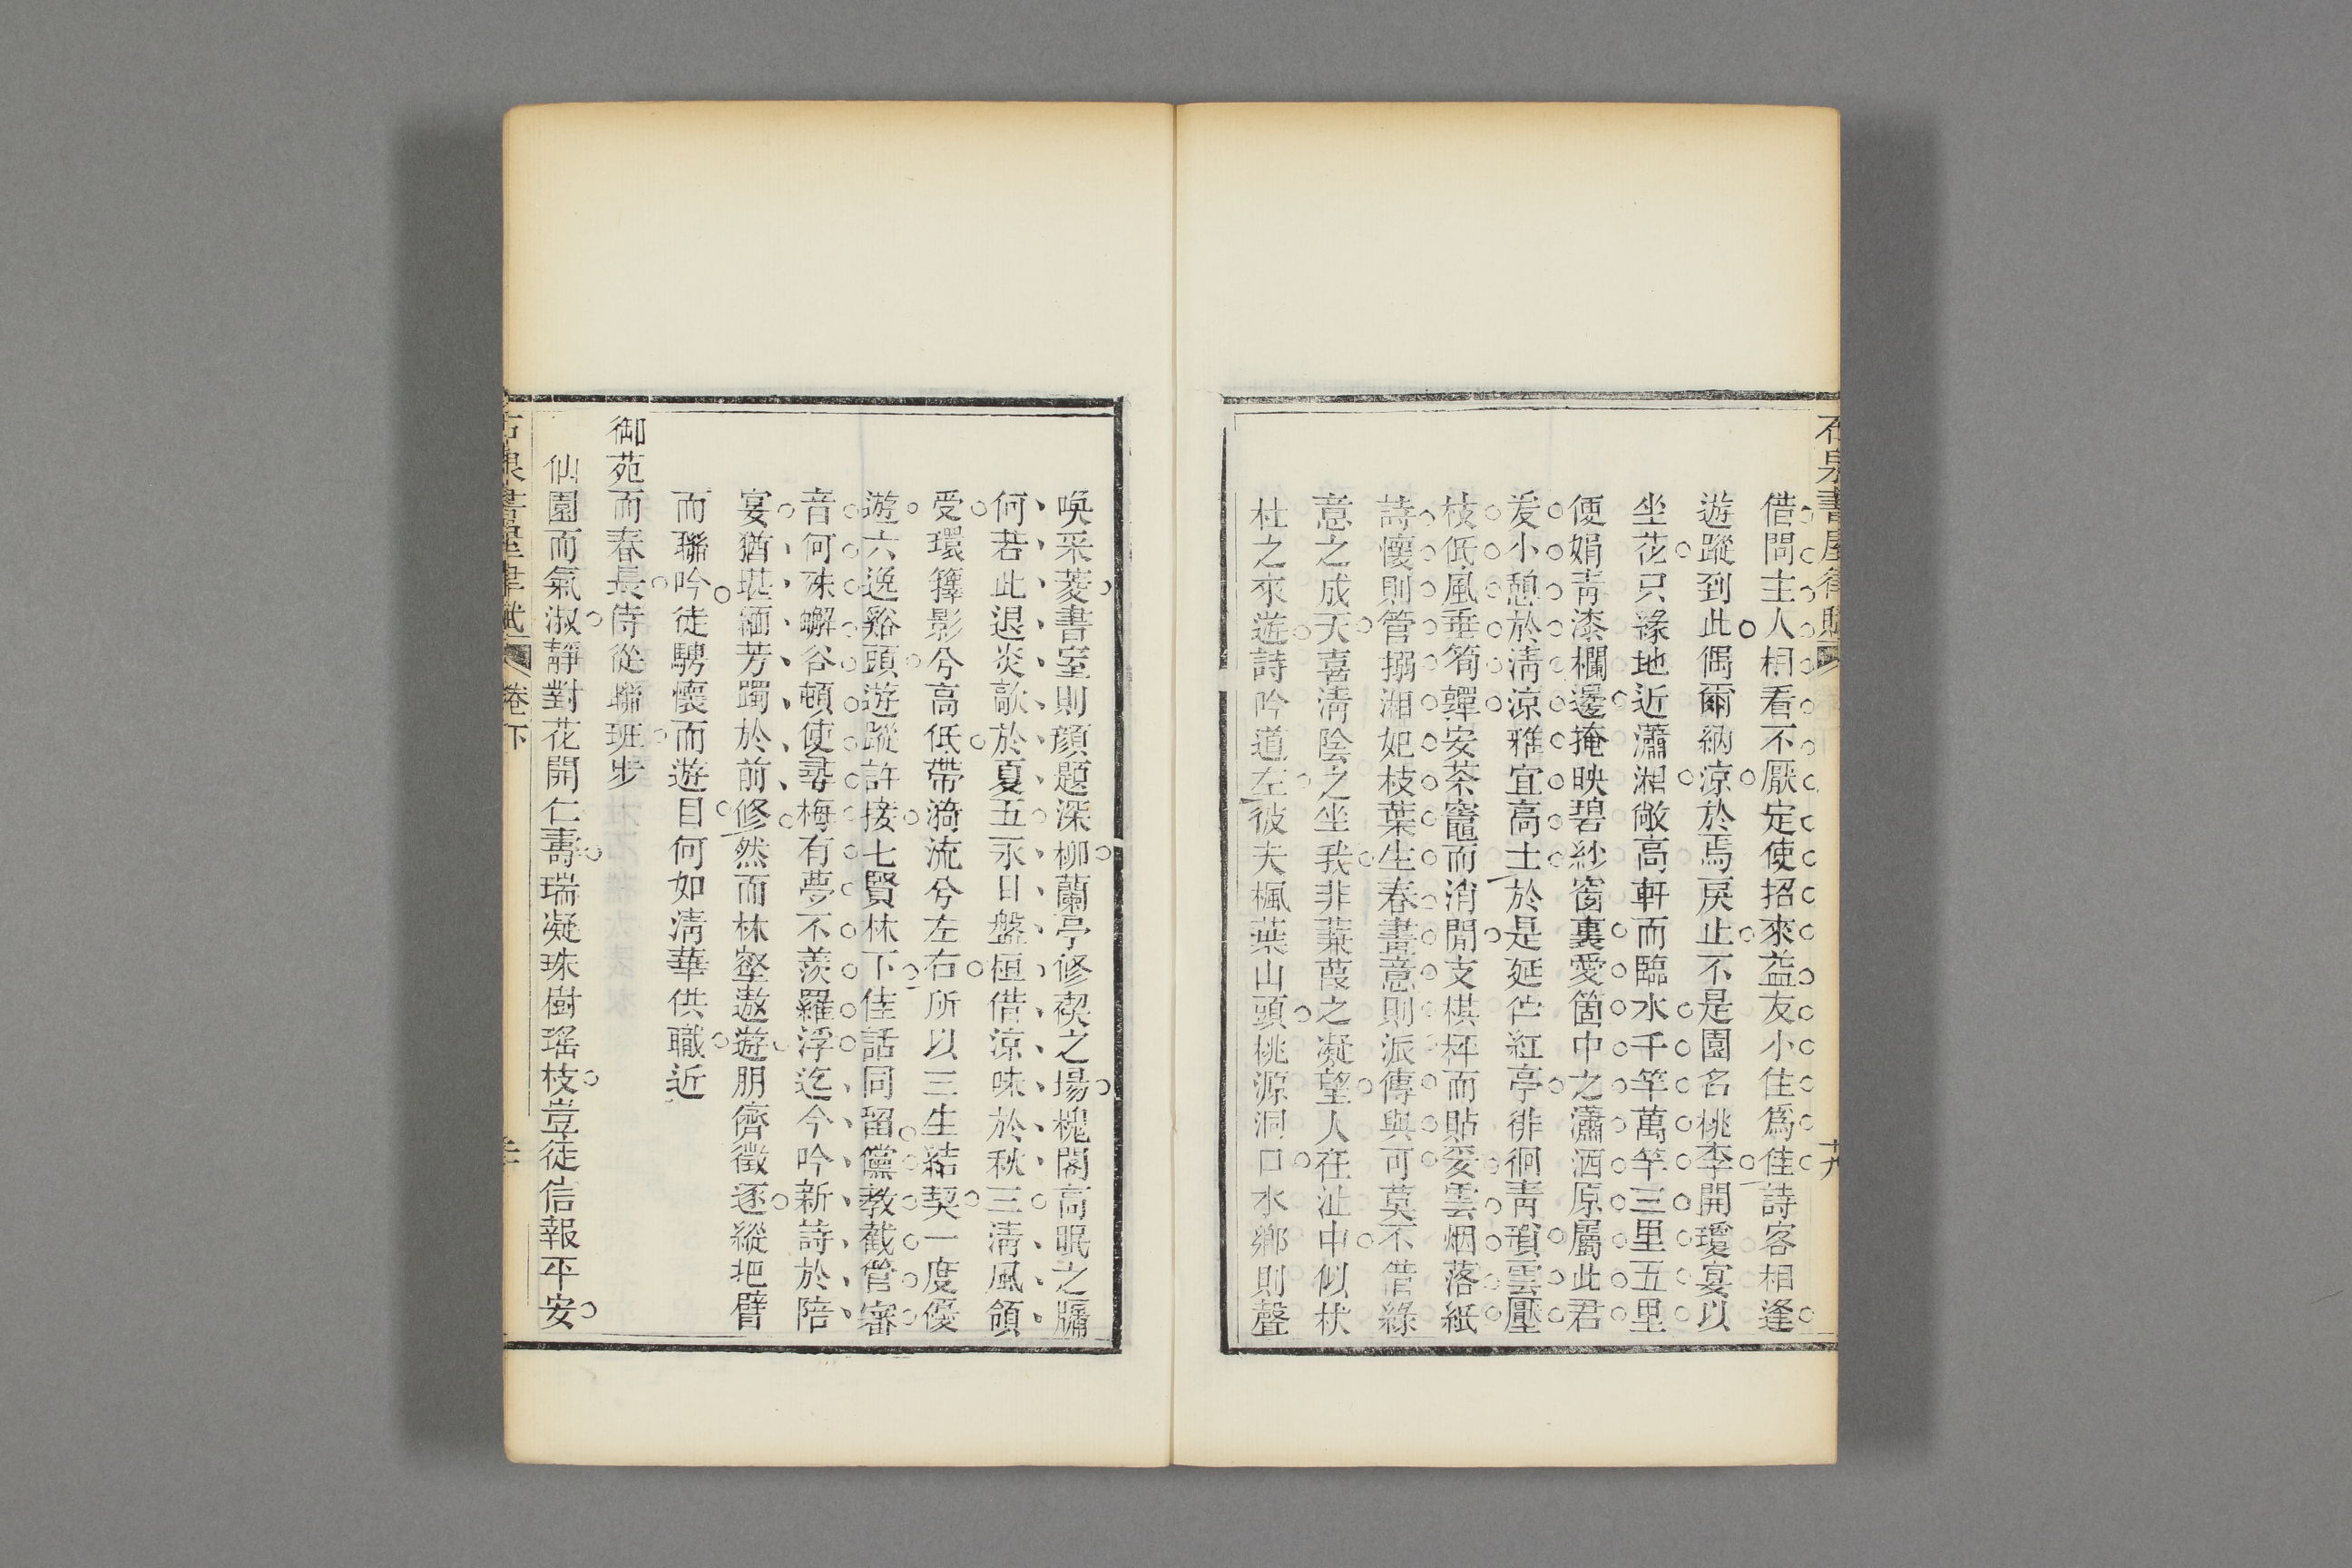 石泉書屋律賦
卷下
十九
借問主人相看不厭定使招來益友小住爲佳詩客相逢
遊蹤到此偶爾納涼於焉戾止不是園名桃李開瓊宴以
坐花只緣地近瀟湘敞高軒而臨水千竿萬竿三里五里
便娟靑漆欄邊掩映碧紗窗裏愛箇中之瀟洒原屬此君
爰小憩於淸涼雅宜高士於是延伫紅亭徘徊靑瑣雲壓
枝低風垂筍嚲安茶竈而消閒支棋枰而貼妥雲烟落紙
詩懷則管搦湘妃枝葉生春畫意則派傳與可莫不借綠
意之成天喜淸陰之坐我非蒹葭之凝望人在沚中似杕
杜之來遊詩吟道左彼夫楓葉山頭桃源洞口水鄉則聲
喚采菱書室則顏題深柳蘭亭修禊之場槐閣高眠之牖
何若此退炎歊於夏五永日盤桓借涼味於秋三淸風領
受環籜影兮高低帶漪流兮左右所以三生結契一度優
遊六逸谿頭遊蹤許接七賢林下佳話同留儻教截管審
音何殊嶰谷頓使尋梅有夢不羨羅浮迄今吟新詩於陪
宴猶堪緬芳躅於前修然而林壑遨遊朋儕徵逐縱把臂
而聯吟徒騁懷而遊目何如淸華供職近
御苑而春長侍從聯班步
仙園而氣淑靜對花開仁壽瑞凝珠樹瑤枝豈徒信報平安
石泉書屋律賦
卷下